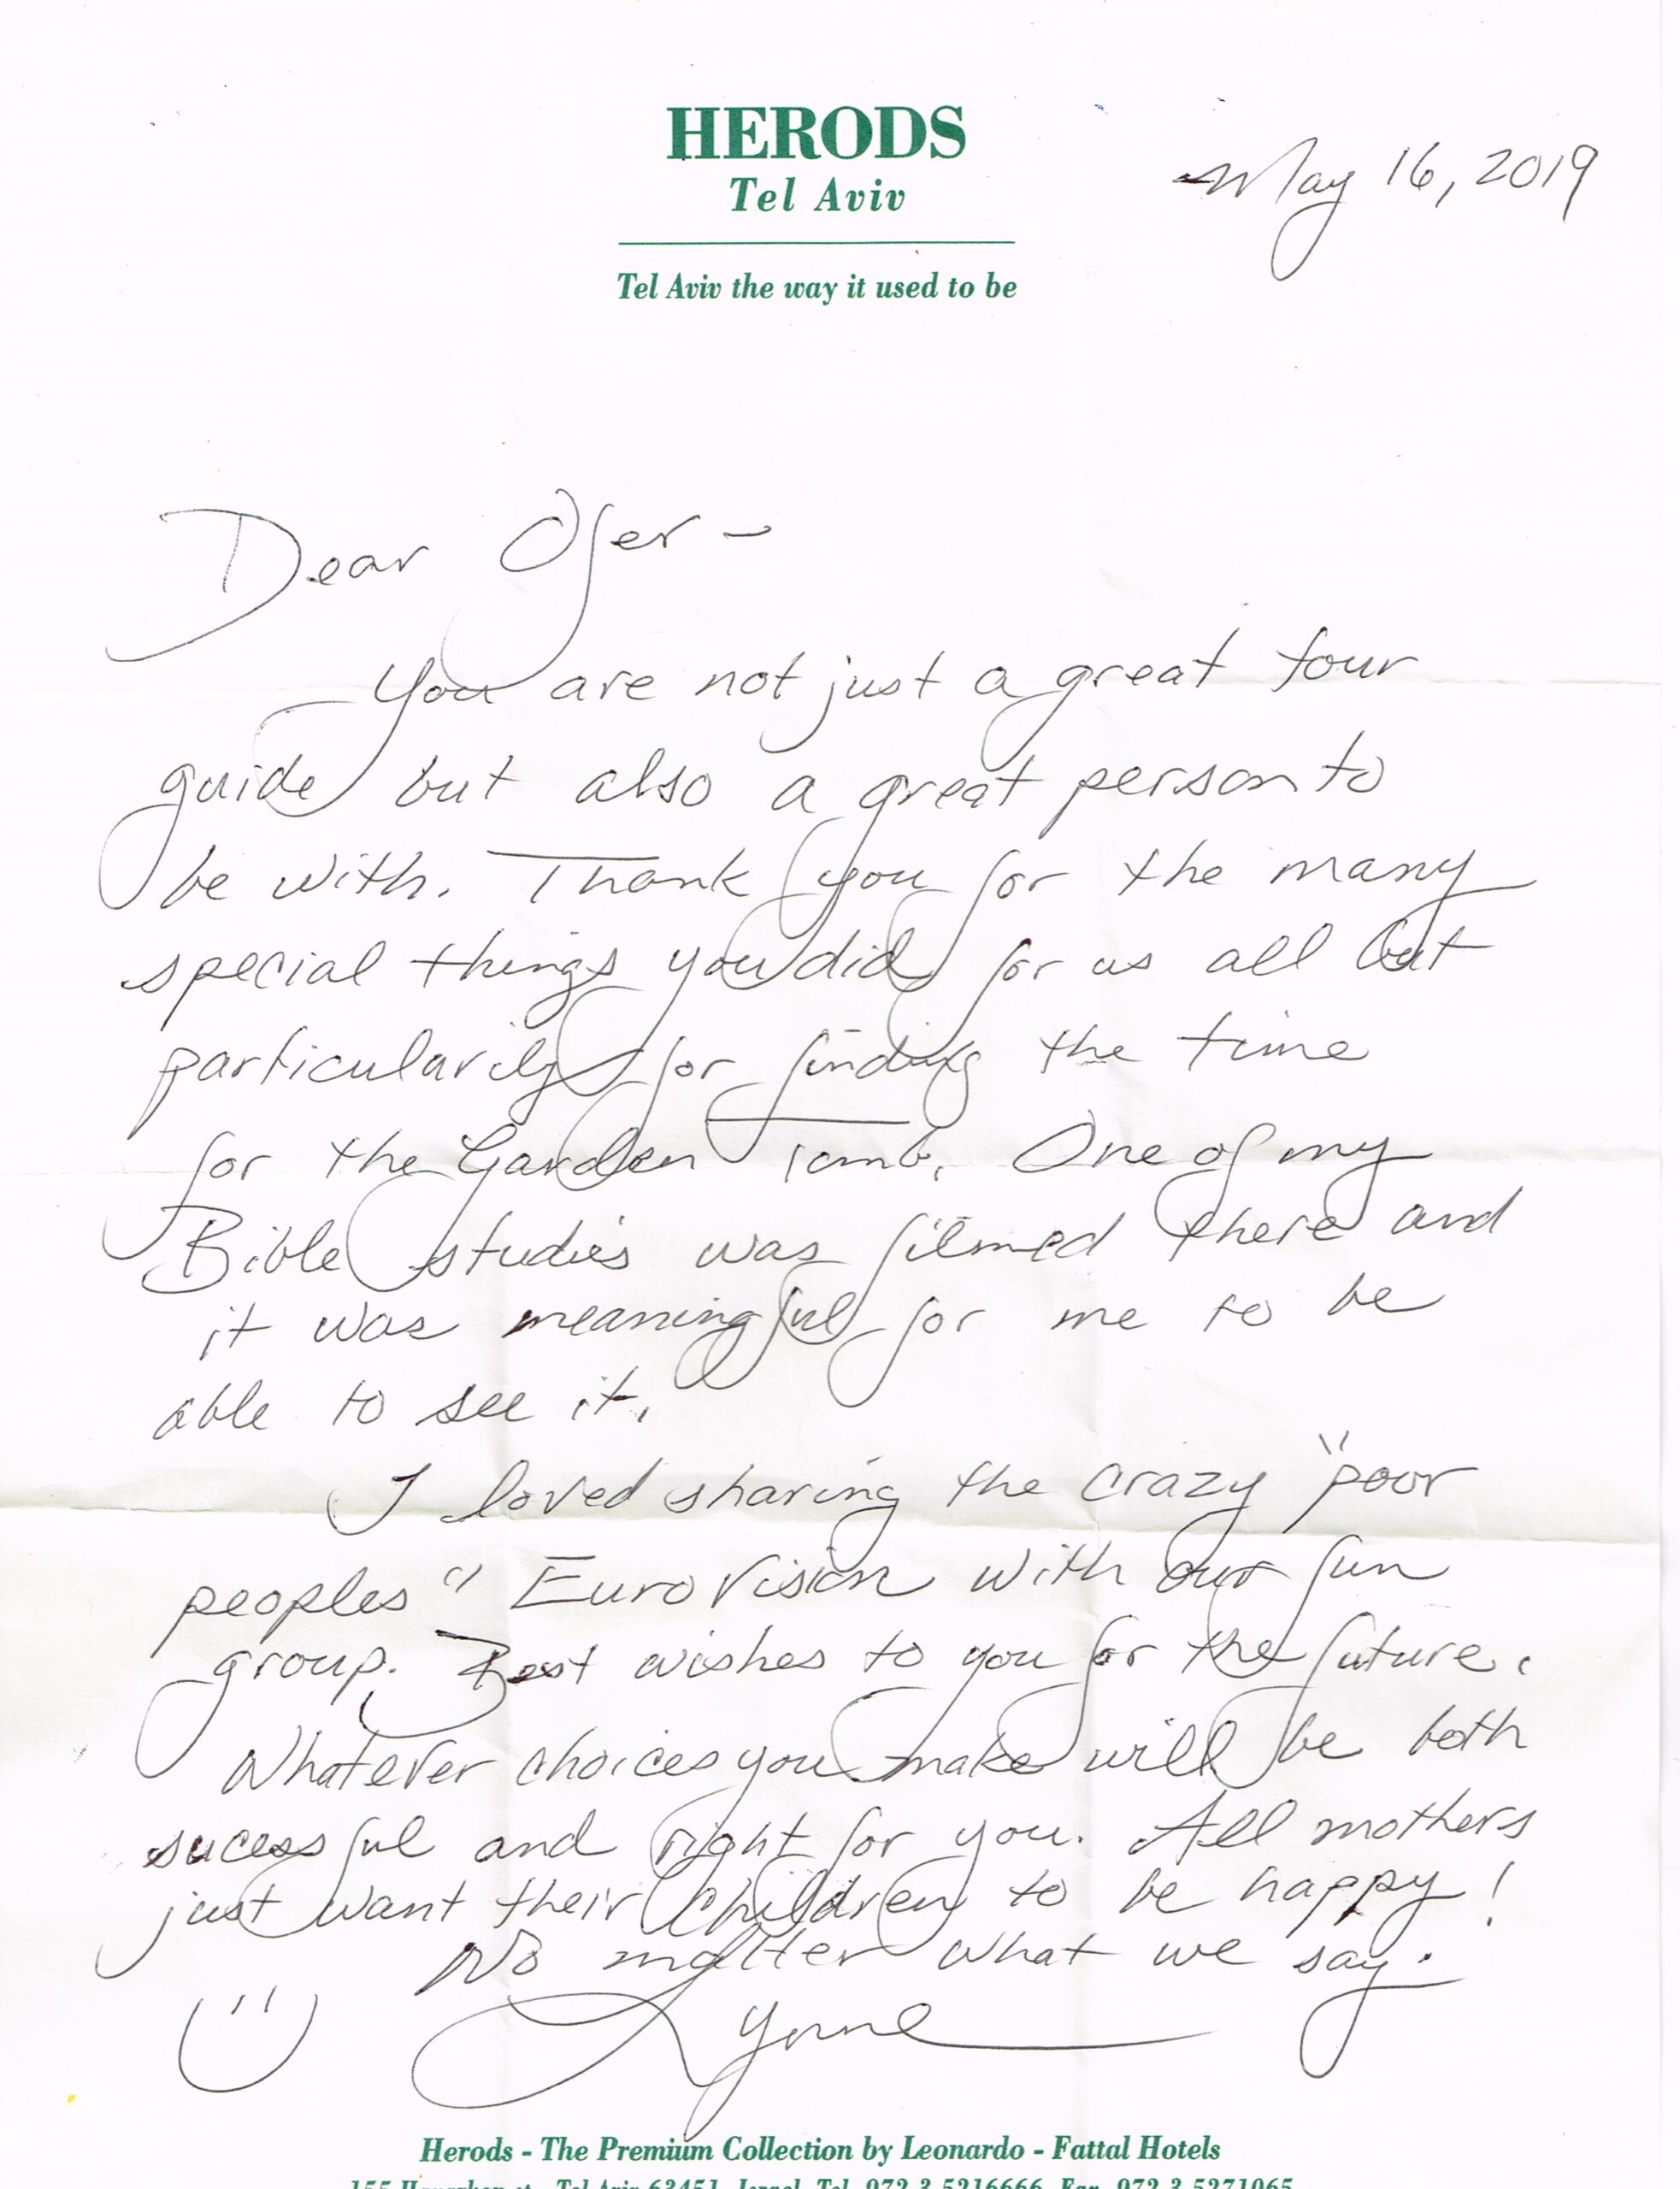 HERODS
Tel Aviv
May 16, 2019
Tel Aviv the way it used to be
Dear Ofer -
You are not just a great tour
guide but also a great person to
be with. Thank you for the many
special things you did for us all but
particularily for finding the time
for the Garden Tomb. One of my
Bible studies was filmed there and
it was meaningful for me to be
able to see it.
I loved sharing the crazy "poor
peoples" EuroVision with our fun
group. Best wishes to you for the future.
Whatever choices you make will be both
sucessful and right for you. All mothers
just want their children to be happy!
No matter what we say.
Lynne
Herods - The Premium Collection by Leonardo - Fattal Hotels
155 Hayarkon st., Tel Aviv 63451, Israel, Tel. 972 3 5216666, Fax. 972 3 5271065